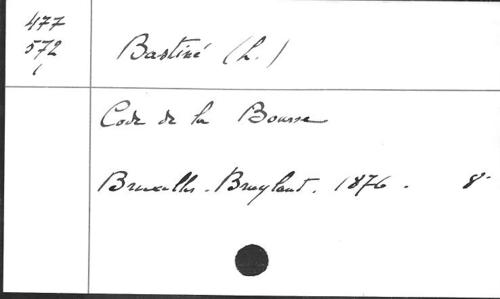 477
572
1
Bastiné (L.)
Code de la Bourse
Bruxelles. Bruylant. 1876. 8°